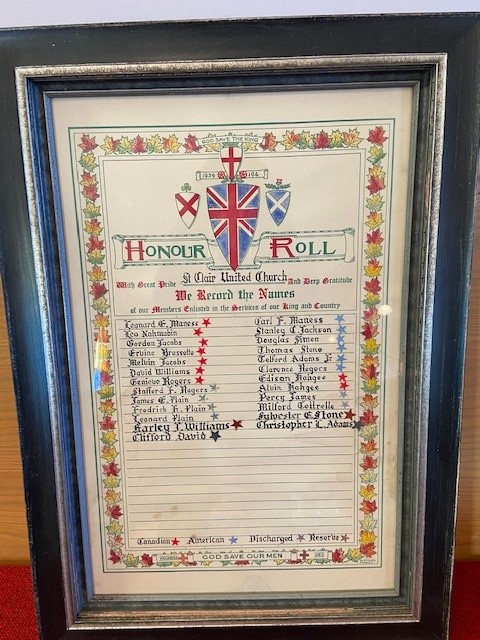 GOD SAVE THE KING
1939 194
HONOUR ROLL
With Great Pride St Clair United Church And Deep Gratitude
We Record the Names
of our Members Enlisted in the Services of our King and Country
Leonard E. Maness
Leo Nahmabin
Gordon Jacobs
Ervine Bressette
Melvin Jacobs
David Williams
Genieve Rogers
Stafford F. Rogers
James E. Plain
Fredrich H. Plain
Leonard Plain
Harley J. Williams
Clifford David
Carl F. Maness
Stanley C. Jackson
Douglas Simon
Thomas Stone
Telford Adams Jr
Clarence Rogers
Edison Kahgee
Alvin Kahgee
Percy James
Milford Cottrelle
Sylvester E. Stone
Christopher L. Adams
Canadian American Discharged Reserve
GOD SAVE OUR MEN